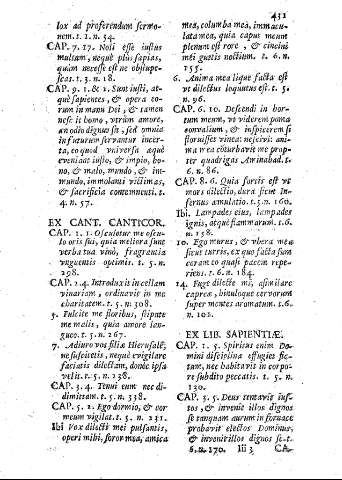 431
lox ad proferendum sermo-
nem. t. 1. n. 54.
CAP. 7. 17. Noli esse iustus
multum, neque plus sapias,
quàm necesse est ne obstupe-
scas. t. 3. n. 18.
CAP. 9. 1. & 2. Sunt iusti, at-
què sapientes, & opera eo-
rum in manu Dei, & tamen
nescit homo, vtrùm amore,
an odio dignus sit, sed omnia
in futurum servantur incer-
ta, eo quod vniversa æquè
eveniant iusto, & impio, bo-
no, & malo, mundo, & im-
mundo, immolanti victimas,
& sacrificia contemnenti. t.
4. n. 57.
EX CANT. CANTICOR.
CAP. 1. 1. Osculetur me oscu-
lo oris sui, quia meliora sunt
verba tua vinò, fragrantia
vnguentis optimis. t. 5. n.
298.
CAP. 2.4. Introduxit in cellam
vinariam, ordinavit in me
charitatem. t. 5. n. 308.
5. Fulcite me floribus, stipate
me malis, quia amore lan-
gueo. t. 5. n. 267.
7. Adiuro vos filiæ Hierusalē;
ne suscitetis, neque evigilare
faciatis dilectam, donèc ipsa
velit. t. 5. n. 238.
CAP. 3. 4. Tenui eum nec di-
dimittam. t. 5. n. 338.
CAP. 5. 2. Ego dormio, & cor
meum vigilat. t. 5. n. 231.
Ibi Vox dilecti mei pulsantis,
operi mihi, soror mea, amica
mea, columba mea, immacu-
lata mea, quia caput meum
plenum est rore, & cincini
mei guttis noctium. t. 6. n.
155.
6. Anima mea lique facta est
vt dilectus loquutus est. t. 5.
n. 96.
CAP. 6. 10. Descendi in hor-
tum meum, vt viderem poma
convalium, & inspicerem si
floruisses vinea: nescivi: ani-
ma mea coturbavit me prop-
ter quadrigas Aminabad. t.
6. n. 86.
CAP. 8. 6. Quia fortis est vt
mors dilectio, dura sicut In-
fernus amulatio. t. 5. n. 160.
Ibi. Lampades eius, lampades
ignis, atque flammarum. t. 6.
n. 158.
10. Ego murus, & vbera mea
sicut turris, ex quo facta sum
coram eo quasi pacem repe-
riens. t. 6. n. 184.
14. Fuge dilecte mi, assimilare
capreæ, hinuloque cervorum
super montes aromatum. t. 6.
n. 102.
EX LIB. SAPIENTIÆ.
CAP. 1. 5. Spiritus enim Do-
mini disciplina effugies fic-
tum, nec habitavit in corpo-
re subdito peccatis. t. 5. n.
130.
CAP. 3. 5. Deus tentavit ius-
tos, & invenit illos dignos
se tanquam aurum in fornace
probavit electos Dominus,
& invenit illos dignos se. t.
6. n. 170. Iii 3 CA-